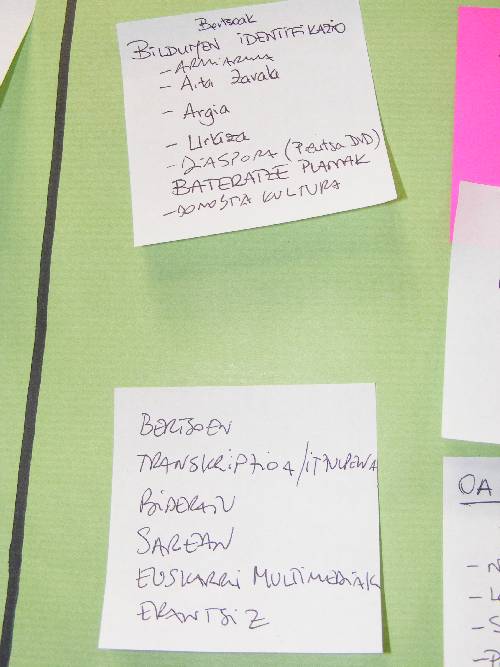 Bertsoak
BILDUMEN IDENTIFIKAZIO
- ARMIARMA
- Aita Zavala
- Argia
- Urkiza
- DIASPORA (Pelutsa DVD)
BATERATZE PLANAK
- DONOSTIA KULTURA
BERTSOEN
TRANSKRIPZIOA/ITZULPENA
BIDERATU
SAREAN
EUSKARRI MULTIMEDIAK
ERANTSIZ
OA
- N
- L
- S